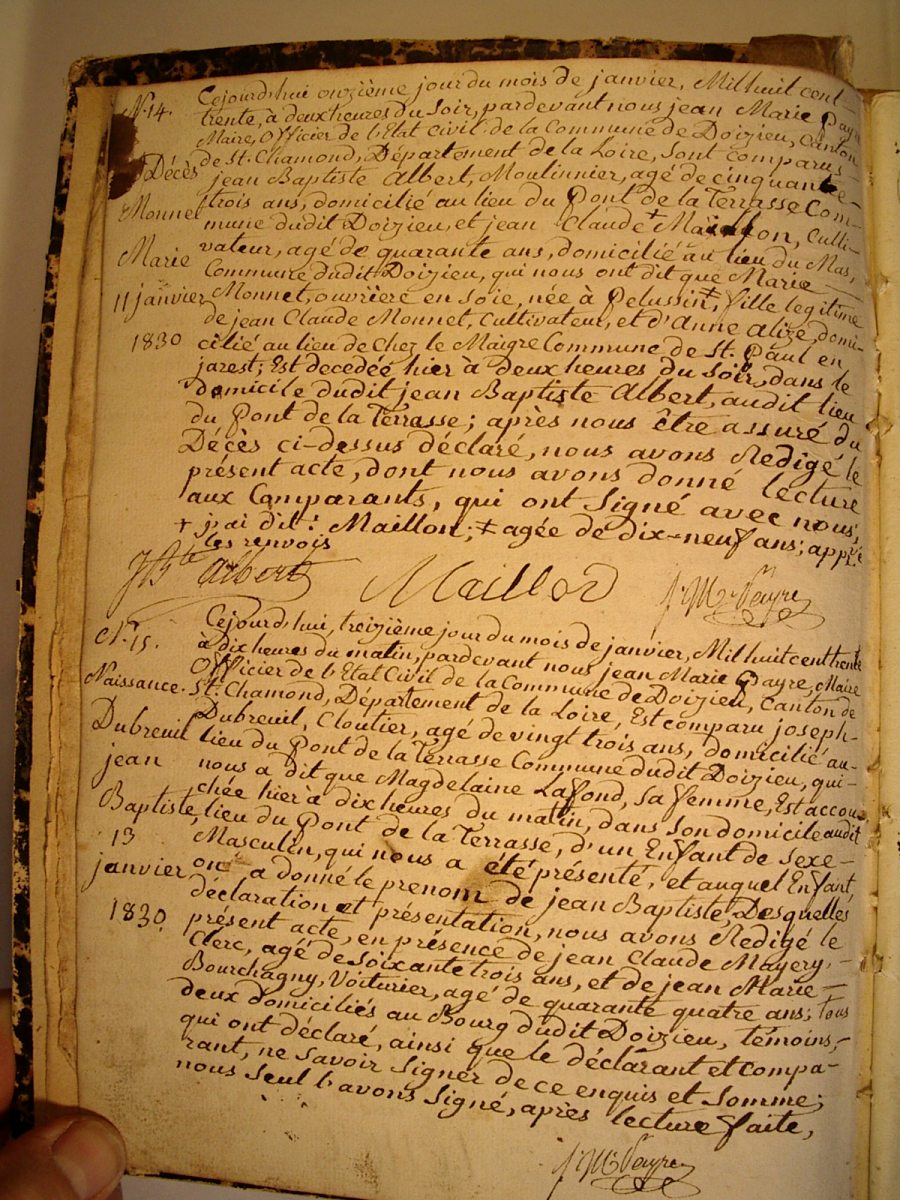 N.14.
Décès
Monnet
Marie
11 janvier
1830
Cejourd'hui onzième jour du mois de janvier, Mil huit cent
trente, à deux heures du Soir, pardevant nous jean Marie Payre
Maire, Officier de l'Etat Civil de la Commune de Doizieu, Canton
de St. Chamond, Département de la Loire, Sont comparus
jean Baptiste Albert, Moulinnier, agé de cinquante-
trois ans, domicilié au lieu du Pont de la Terrasse Com-
mune dudit Doizieu, et jean Claude + Maillon, Culti-
vateur, agé de quarante ans, domicilié au lieu du Mas,
Commune dudit Doizieu, qui nous ont dit que Marie
Monnet, ouvrière en Soie, née à Pelussin ‡, fille legitime
de jean Claude Monnet, Cultivateur, et d'Anne Alize, domi-
cilié au lieu de Chez le Maigre Commune de St. Paul en
jarest; Est decedée hier à deux heures du Soir, dans le
domicile dudit jean Baptiste Albert, audit lieu
du Pont de la Terrasse; après nous être assuré du
Décès ci-dessus déclaré, nous avons Redigé le
présent acte, dont nous avons donné lecture
aux Comparants, qui ont Signé avec nous;
+ j'ai dit: Maillon; ‡ agée de dix-neuf ans; appr.é
les renvois
JBte Albert Maillon J.M. Payre
N.15.
Naissance.
Dubreuil
jean
Baptiste
13
janvier
1830.
Cejourd'hui, treizième jour du mois de janvier, Mil huit cent trente
à dix heures du matin, pardevant nous jean Marie Payre, Maire
Officier de l'Etat Civil de la Commune de Doizieu, Canton de
St. Chamond, Département de la Loire, Est comparu joseph-
Dubreuil, Cloutier, agé de vingt trois ans, domicilié au-
lieu du Pont de la Terrasse Commune dudit Doizieu, qui-
nous a dit que Magdelaine Lafond, Sa femme, Est accou-
chée hier à dix heures du matin, dans Son domicile audit
lieu du Pont de la Terrasse, d'un Enfant de Sexe-
Masculin, qui nous a été présenté, et auquel Enfant
on a donné le prenom de jean Baptiste; Desquelles
déclaration et présentation, nous avons Redigé le
présent acte, en présence de jean Claude Mayery,-
Clerc, agé de Soixante trois ans, et de jean Marie-
Bourchagny, Voiturier, agé de quarante quatre ans; tous
deux domiciliés au Bourg dudit Doizieu, témoins,-
qui ont déclaré, ainsi que le déclarant et compa-
rant, ne Savoir Signer de ce enquis et Somme;
nous Seul l'avons Signé, après lecture faite,
J.M. Payre